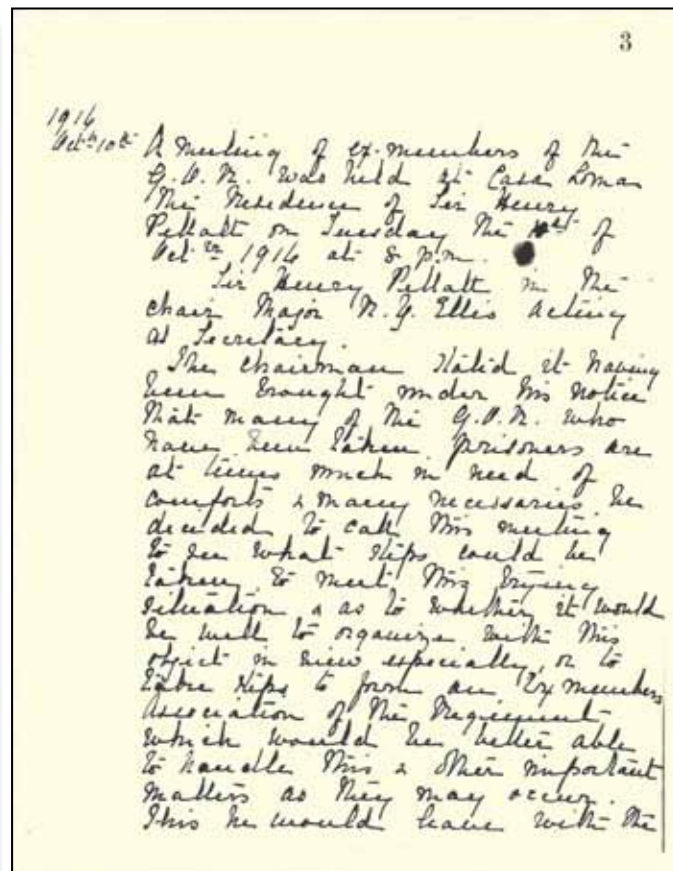 3
1916
Oct. 10th A meeting of ex-members of the
Q.O.R. was held at Casa Loma
the Residence of Sir Henry
Pellatt on Tuesday the of
Oct. 1916 at 8 p.m.
Sir Henry Pellatt in the
chair Major R. Y. Ellis acting
as Secretary.
The chairman stated it having
been brought under his notice
that many of the Q.O.R. who
have been taken prisoners are
at times much in need of
comforts & many necessaries he
decided to call this meeting
to see what steps could be
taken to meet this trying
situation & as to whether it would
be well to organize with this
object in view especially, or to
take steps to form an Ex members
Association of the Regiment
which would be better able
to handle this & other important
matters as they may occur.
This he would leave with the